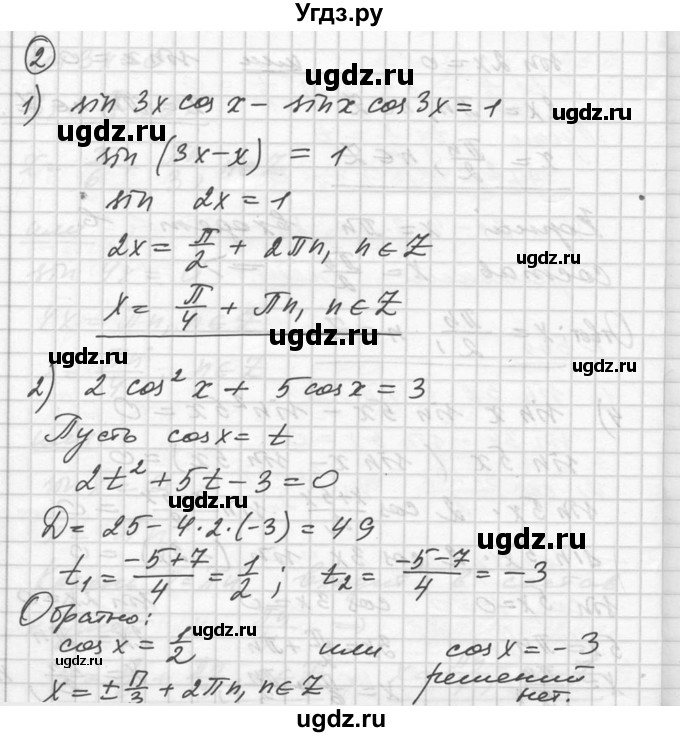 Угдз.ру
2
1) sin 3x cos x - sin x cos 3x = 1
ugdz.ru
ugdz.ru
sin (3x-x) = 1
sin 2x = 1
2x = π/2 + 2πn, n ∈ Z
ugdz.ru
x = π/4 + πn, n ∈ Z
ugdz.ru
ugdz.ru
ugdz.ru
2) 2 cos² x + 5 cos x = 3
Пусть cos x = t
2t² + 5t - 3 = 0
ugdz.ru
D = 25 - 4·2·(-3) = 49
ugdz.ru
t₁ = (-5+7)/4 = 1/2; t₂ = (-5-7)/4 = -3
Обратно:
ugdz.ru
cos x = 1/2 или cos x = -3
ugdz.ru
решений
x = ± π/3 + 2πn, n ∈ Z нет.
ugdz.ru
ugdz.ru